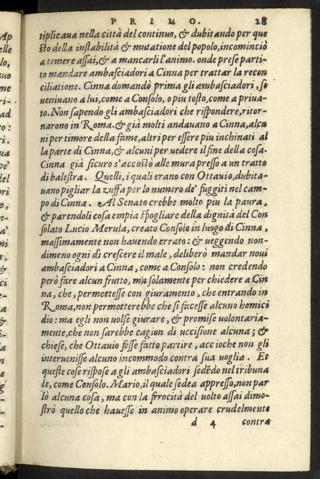 PRIMO. 28
tiplicaua nella città del continuo, & dubitando per que
sto della instabilità & mutatione del popolo, incominciò
a temere assai, & a mancarli l'animo. onde prese parti-
to mandare ambasciadori a Cinna per trattar la recon
ciliatione. Cinna domandò prima gli ambasciadori, se
veniuano a lui, come a Consolo, o piu tosto, come a priua-
to. Non sapendo gli ambasciadori che rispondere, ritor-
narono in Roma. & già molti andauano a Cinna, alcu
ni per timore della fame, altri per essere piu inchinati al
la parte di Cinna, & alcuni per uedere il fine della cosa.
Cinna già sicuro s'accostò alle mura presso a un tratto
di balestra. Quelli, i quali erano con Ottauio, dubita-
uano pigliar la zuffa per lo numero de' fuggiti nel cam-
po di Cinna. Al Senato crebbe molto piu la paura,
& parendoli cosa empia spogliare della dignità del Con
solato Lucio Merula, creato Consolo in luogo di Cinna,
massimamente non hauendo errato: & ueggendo non-
dimeno ogni dì crescere il male, deliberò mandar noui
ambasciadori a Cinna, come a Consolo: non credendo
però fare alcun frutto, ma solamente per chiedere a Cin
na, che, permettesse con giuramento, che entrando in
Roma, non permetterebbe che si facesse alcuno homici
dio: ma egli non uolse giurare, & promise volontaria-
mente, che non sarebbe cagion di uccisione alcuna; &
chiese, che Ottauio fosse fatto partire, accioche non gli
interuenisse alcuno incommodo contra sua voglia. Et
queste cose rispose a gli ambasciadori sedẽdo nel tribuna
le, come Consolo. Mario, il quale sedea appresso, non par
lò alcuna cosa, ma con la ferocità del volto assai dimo-
strò quello che hauesse in animo operare crudelmente
d 4 contra